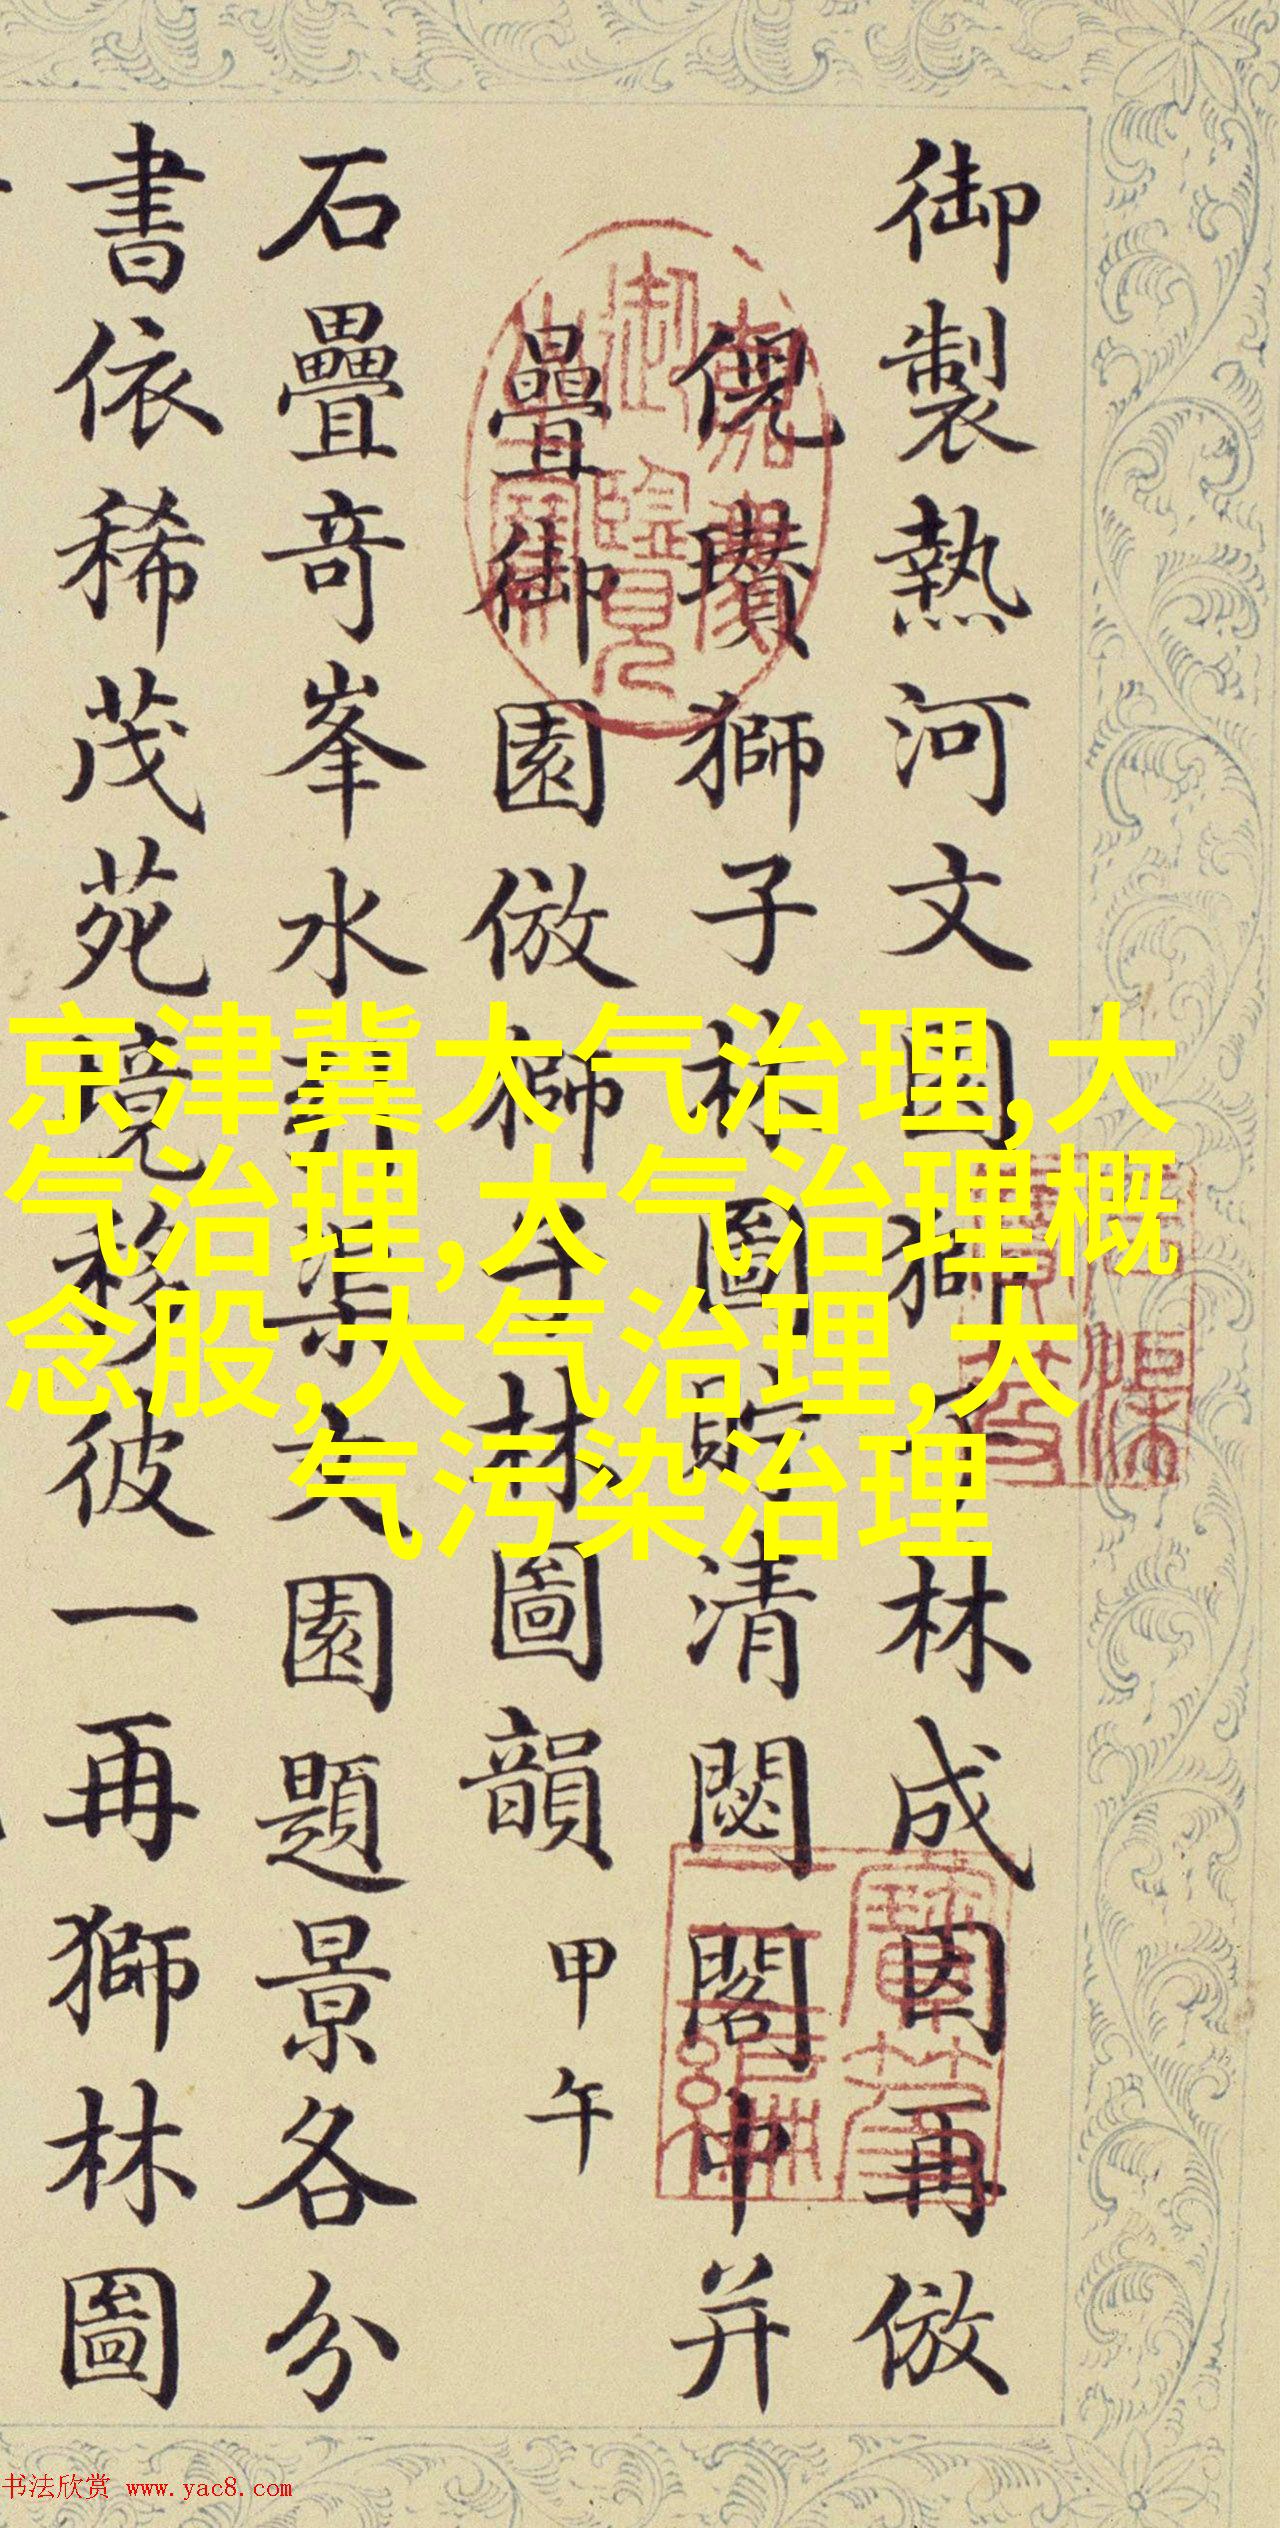 御製熱河文園獅子林成因再倣
倪瓚獅子林圖貯清閟閣中并
疊御園倣獅子林圖韻 甲午
石疊奇峯水
文園題景各分
書依稀茂苑境移彼一再獅林圖
京津冀大气治理,大
气治理,大气治理概
念股,大气治理,大
气污染治理
书法欣赏 www.yac8.com